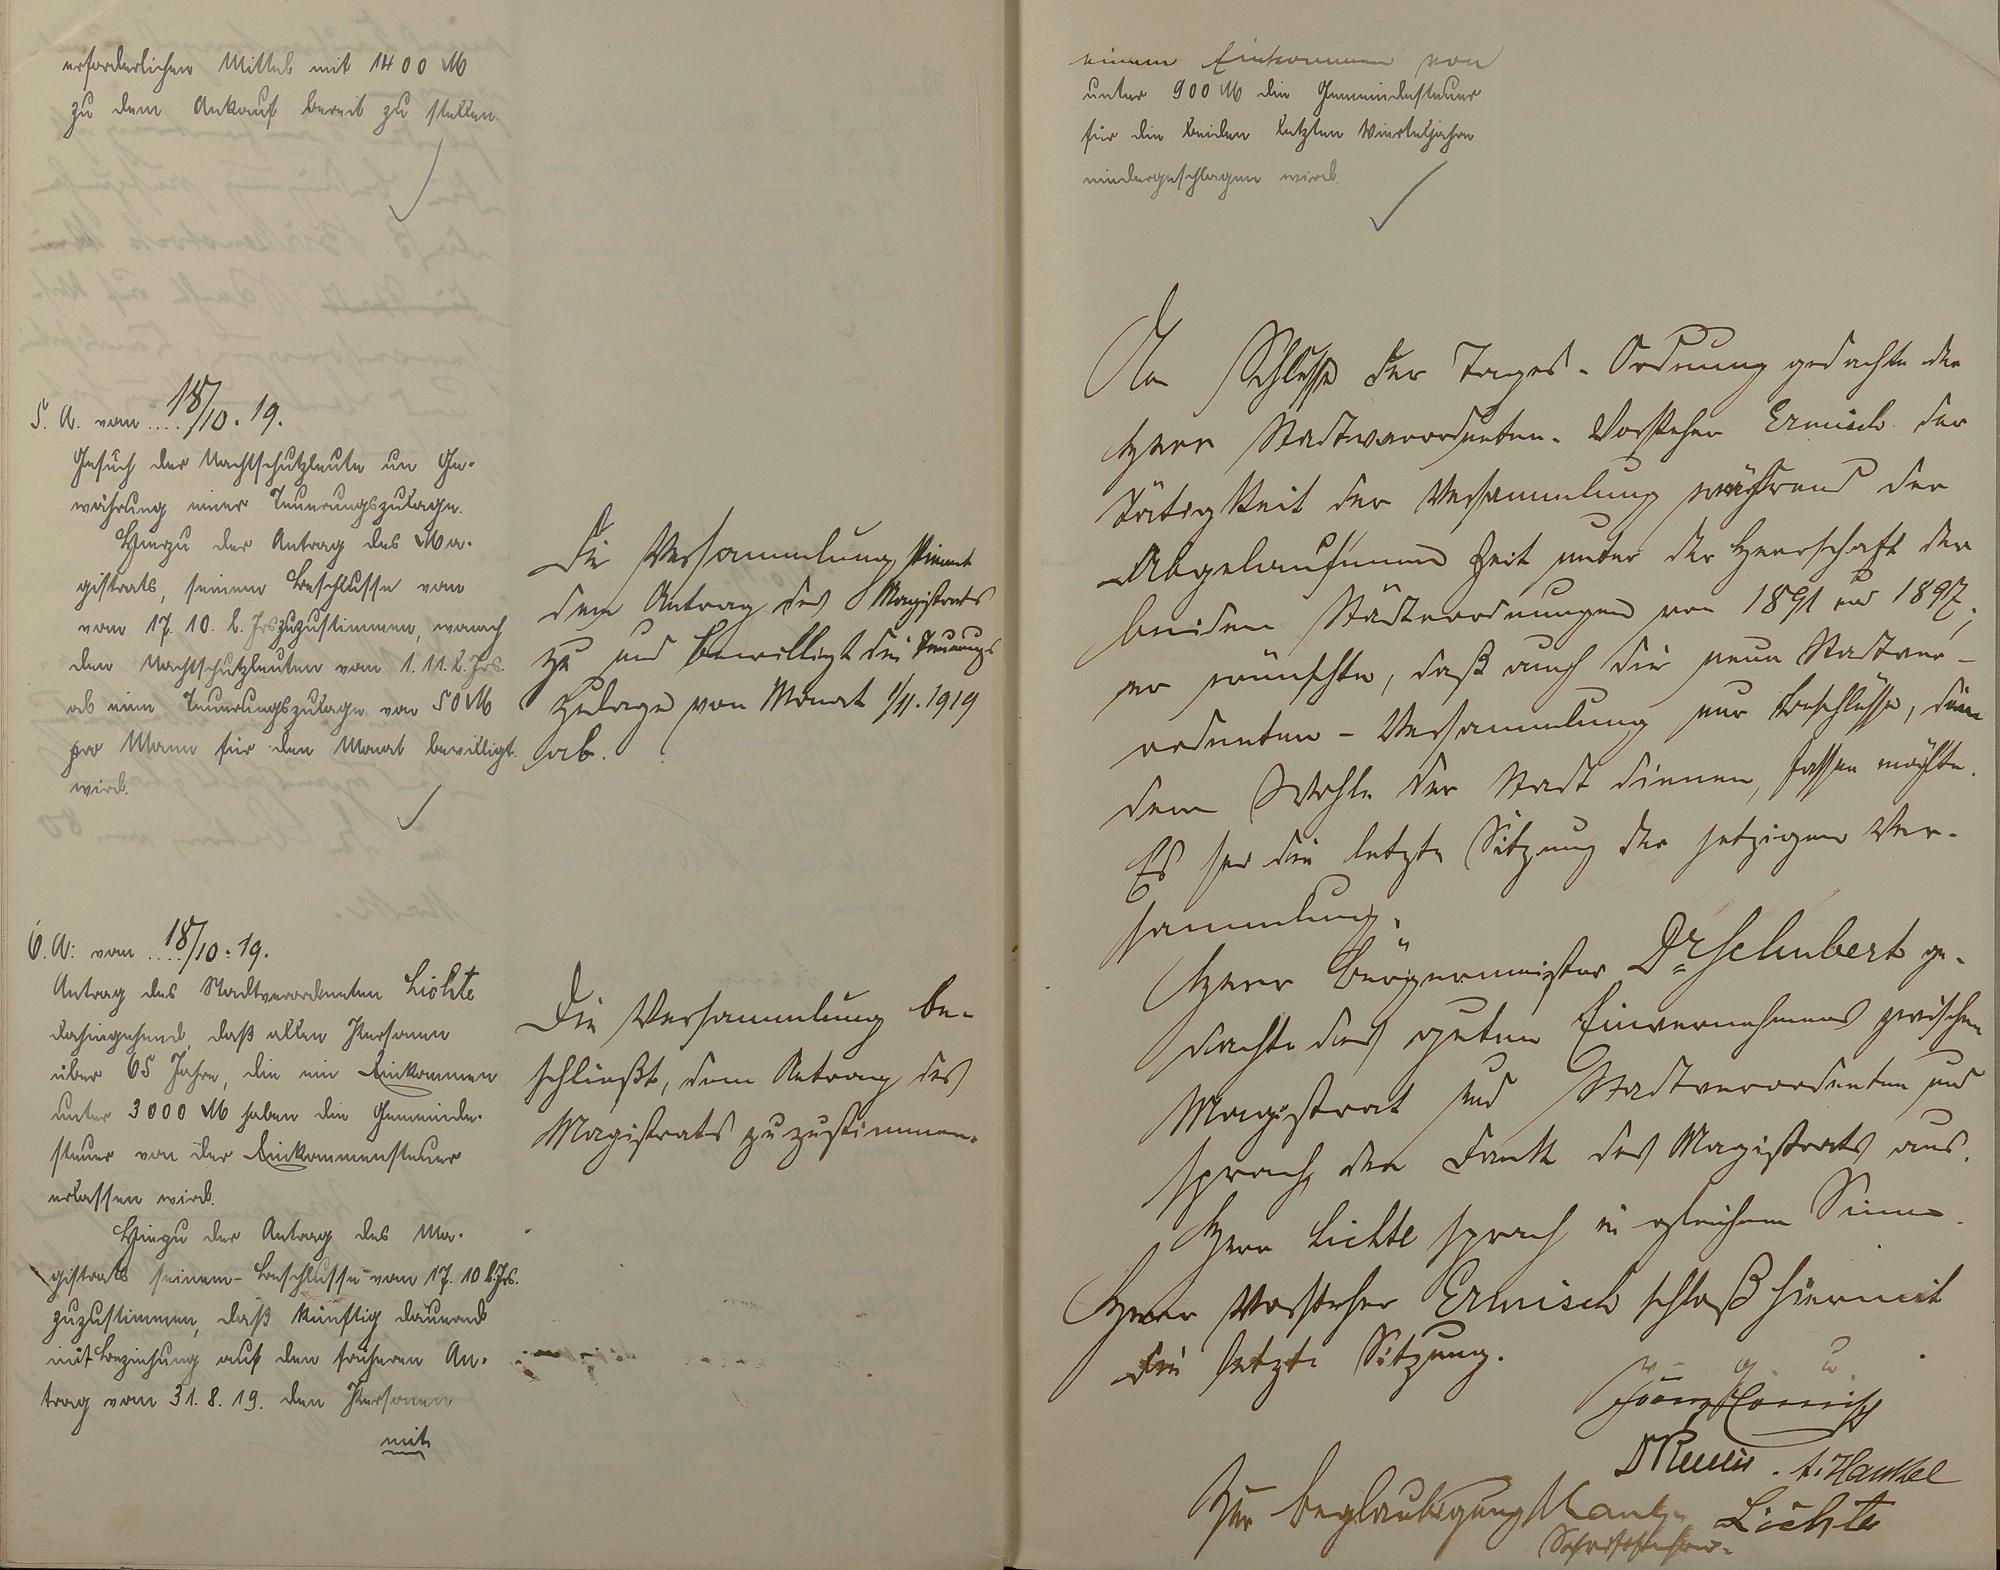 erforderlichen Mittel mit 1400 M
zu dem Ankauf bereit zu stellen.
5. A. vom .... 18/10. 19.
Gesuch der Nachtschutzleute un Ge-
währung einer Teuerungszulage.
Hierzu der Antrag des Ma-
gistrats, seinem Beschlusse vom
vom 17. 10. l. Jrs. zuzustimmen, wonach
den Nachtschutzleuten vom 1. 11. l. Jrs.
ab eine Teuerungszulage von 50 M
pro Mann für den Monat bewilligt
wird.
Die Versammlung stimmt
dem Antrag des Magistrats
zu und bewilligt die Teuerungs
Zulage von Monat 1/11. 1919
ab.
6. A: vom .... 18/10. 19.
Antrag des Stadtverordneten Lichte
dahingehend, daß allen Personen
über 65 Jahre, die ein Einkommen
unter 3000 M haben die Gemeinde-
steuer von der Einkommensteuer
erlassen wird.
Hierzu der Antrag des Ma-
gistrats seinem Beschlusse vom 17. 10 l. Jrs.
zuzustimmen, daß künftig dauernd
mit Beziehung auf den früheren An-
trag vom 31. 8. 19. den Personen
mit
Die Versammlung be-
schließt, dem Antrag des
Magistrats zuzustimmen.
einem Einkommen von
unter 900 M die Gemeindesteuer
für die beiden letzten Vierteljahre
niedergeschlagen wird.
Am Schlusse der Tages-Ordnung gedachte der
Herr Stadtverordneten-Vorsteher Ermisch der
Tätigkeit der Versammlung während der
Abgelaufenen Zeit unter der Herrschaft der
beiden Städteordnungen von 1891 und 1897;
er wünschte, daß auch die neue Stadtver-
ordneten-Versammlung nur Beschlüsse, die
dem Wohle der Stadt dienen, fassen möchte.
Es sei die letzte Sitzung der jetzigen Ver-
sammlung.
Herr Bürgermeister Dr Schubert ge-
dachte des guten Einvernehmens zwischen
Magistrat und Stadtverordneten und
sprach den Dank des Magistrats aus.
Herr Lichte sprach in gleichem Sinne.
Herr Vorsteher Ermisch schloß hiermit
die letzte Sitzung.
v. g. u.
Ermisch
A. Hankel
Zur Beglaubigung Lichte
Schriftführer.